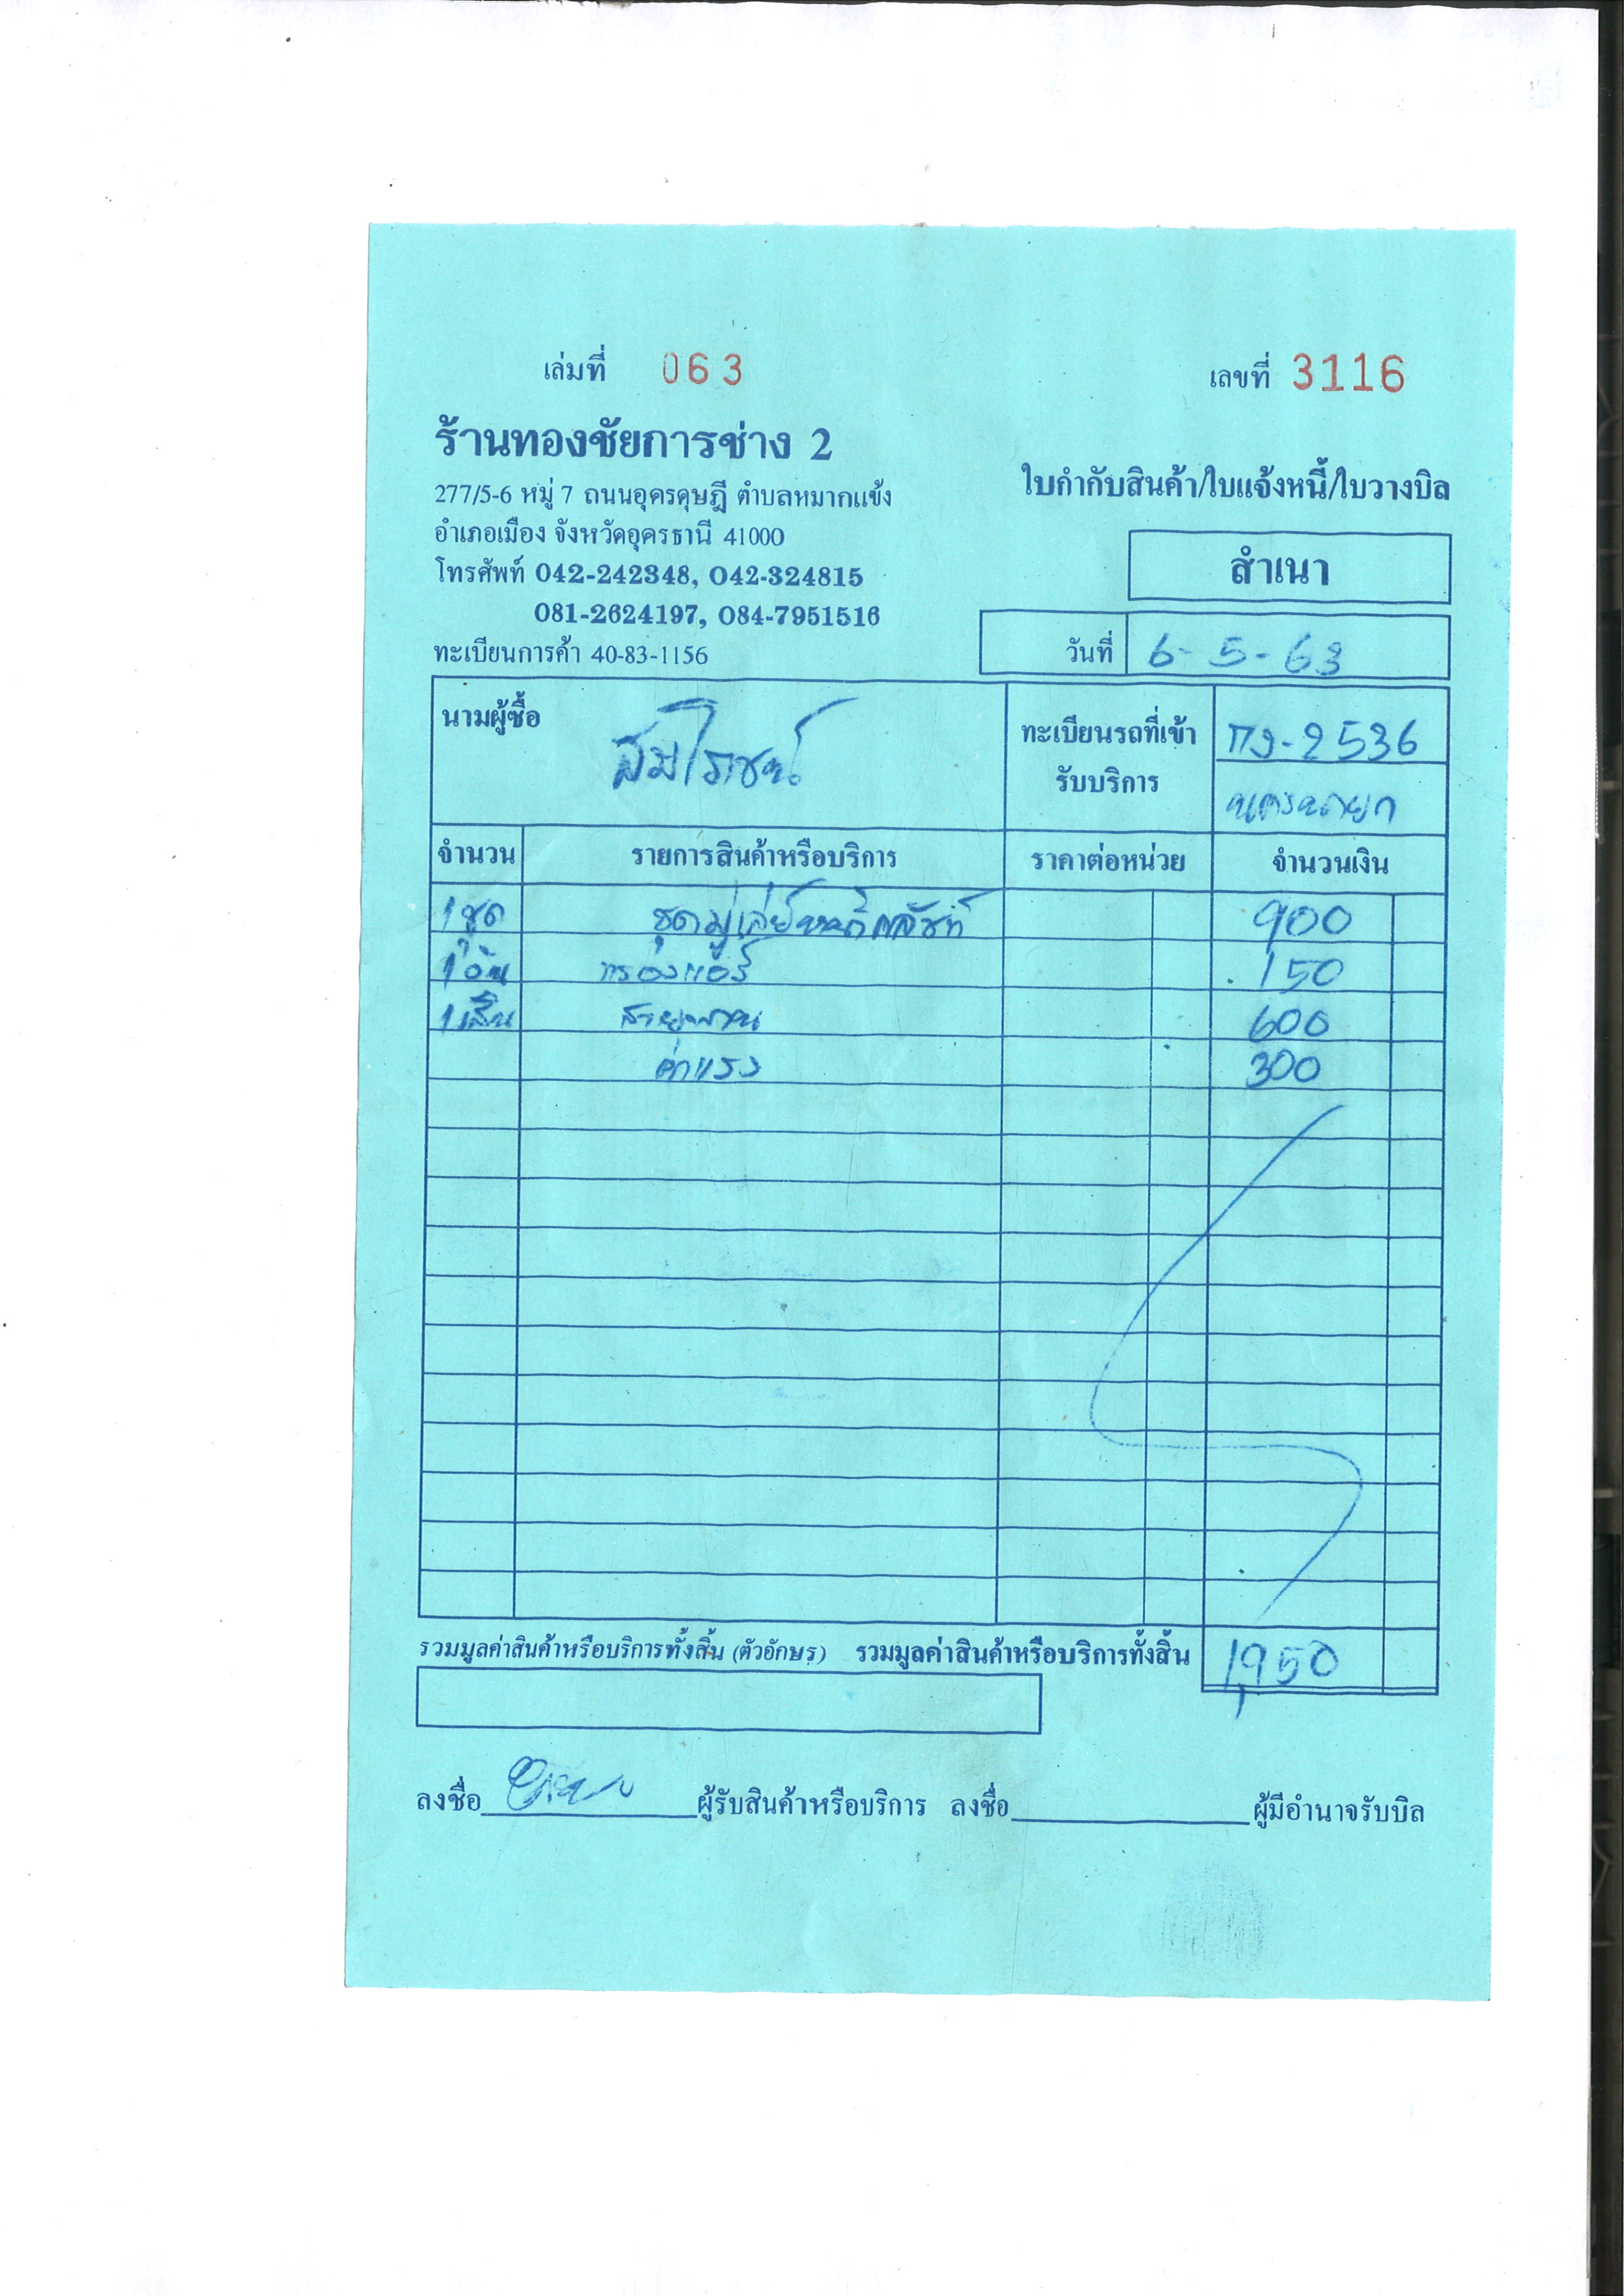 เล่มที่ 063 เลขที่ 3116
ร้านทองชัยการช่าง 2
277/5-6 หมู่ 7 ถนนอุดรดุษฎี ตำบลหมากแข้ง
ใบกำกับสินค้า/ใบแจ้งหนี้/ใบวางบิล
อำเภอเมือง จังหวัดอุดรธานี 41000
โทรศัพท์ 042-242348, 042-324815
สำเนา
081-2624197, 084-7951516
ทะเบียนการค้า 40-83-1156
วันที่ 6-5-63
นามผู้ซื้อ
ทะเบียนรถที่เข้ารับบริการ กง-2536
นครนายก
จำนวน รายการสินค้าหรือบริการ ราคาต่อหน่วย จำนวนเงิน
1 ชุด ชุดมู่เล่ย์หน้าคลัชท์ 900
1 อัน กรองแอร์ 150
1 เส้น สายพาน 600
ค่าแรง 300
รวมมูลค่าสินค้าหรือบริการทั้งสิ้น (ตัวอักษร) รวมมูลค่าสินค้าหรือบริการทั้งสิ้น 1,950
ลงชื่อ ผู้รับสินค้าหรือบริการ ลงชื่อ ผู้มีอำนาจรับบิล